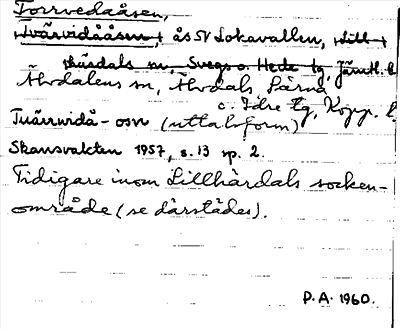 Torrvedaåsen,
Tvärvidååsen, ås SV Lokavallen, Lill-
härdals sn, Svegs o. Hede tg, Jämtl. l.
Älvdalens sn, Älvdals Särna
o. Idre tg, Kopp. l.
Tuärrwidå-osn (uttalsform)
Skansvakten 1957, s. 13 sp. 2.
Tidigare inom Lillhärdals socken-
område (se därstädes).
P.A. 1960.